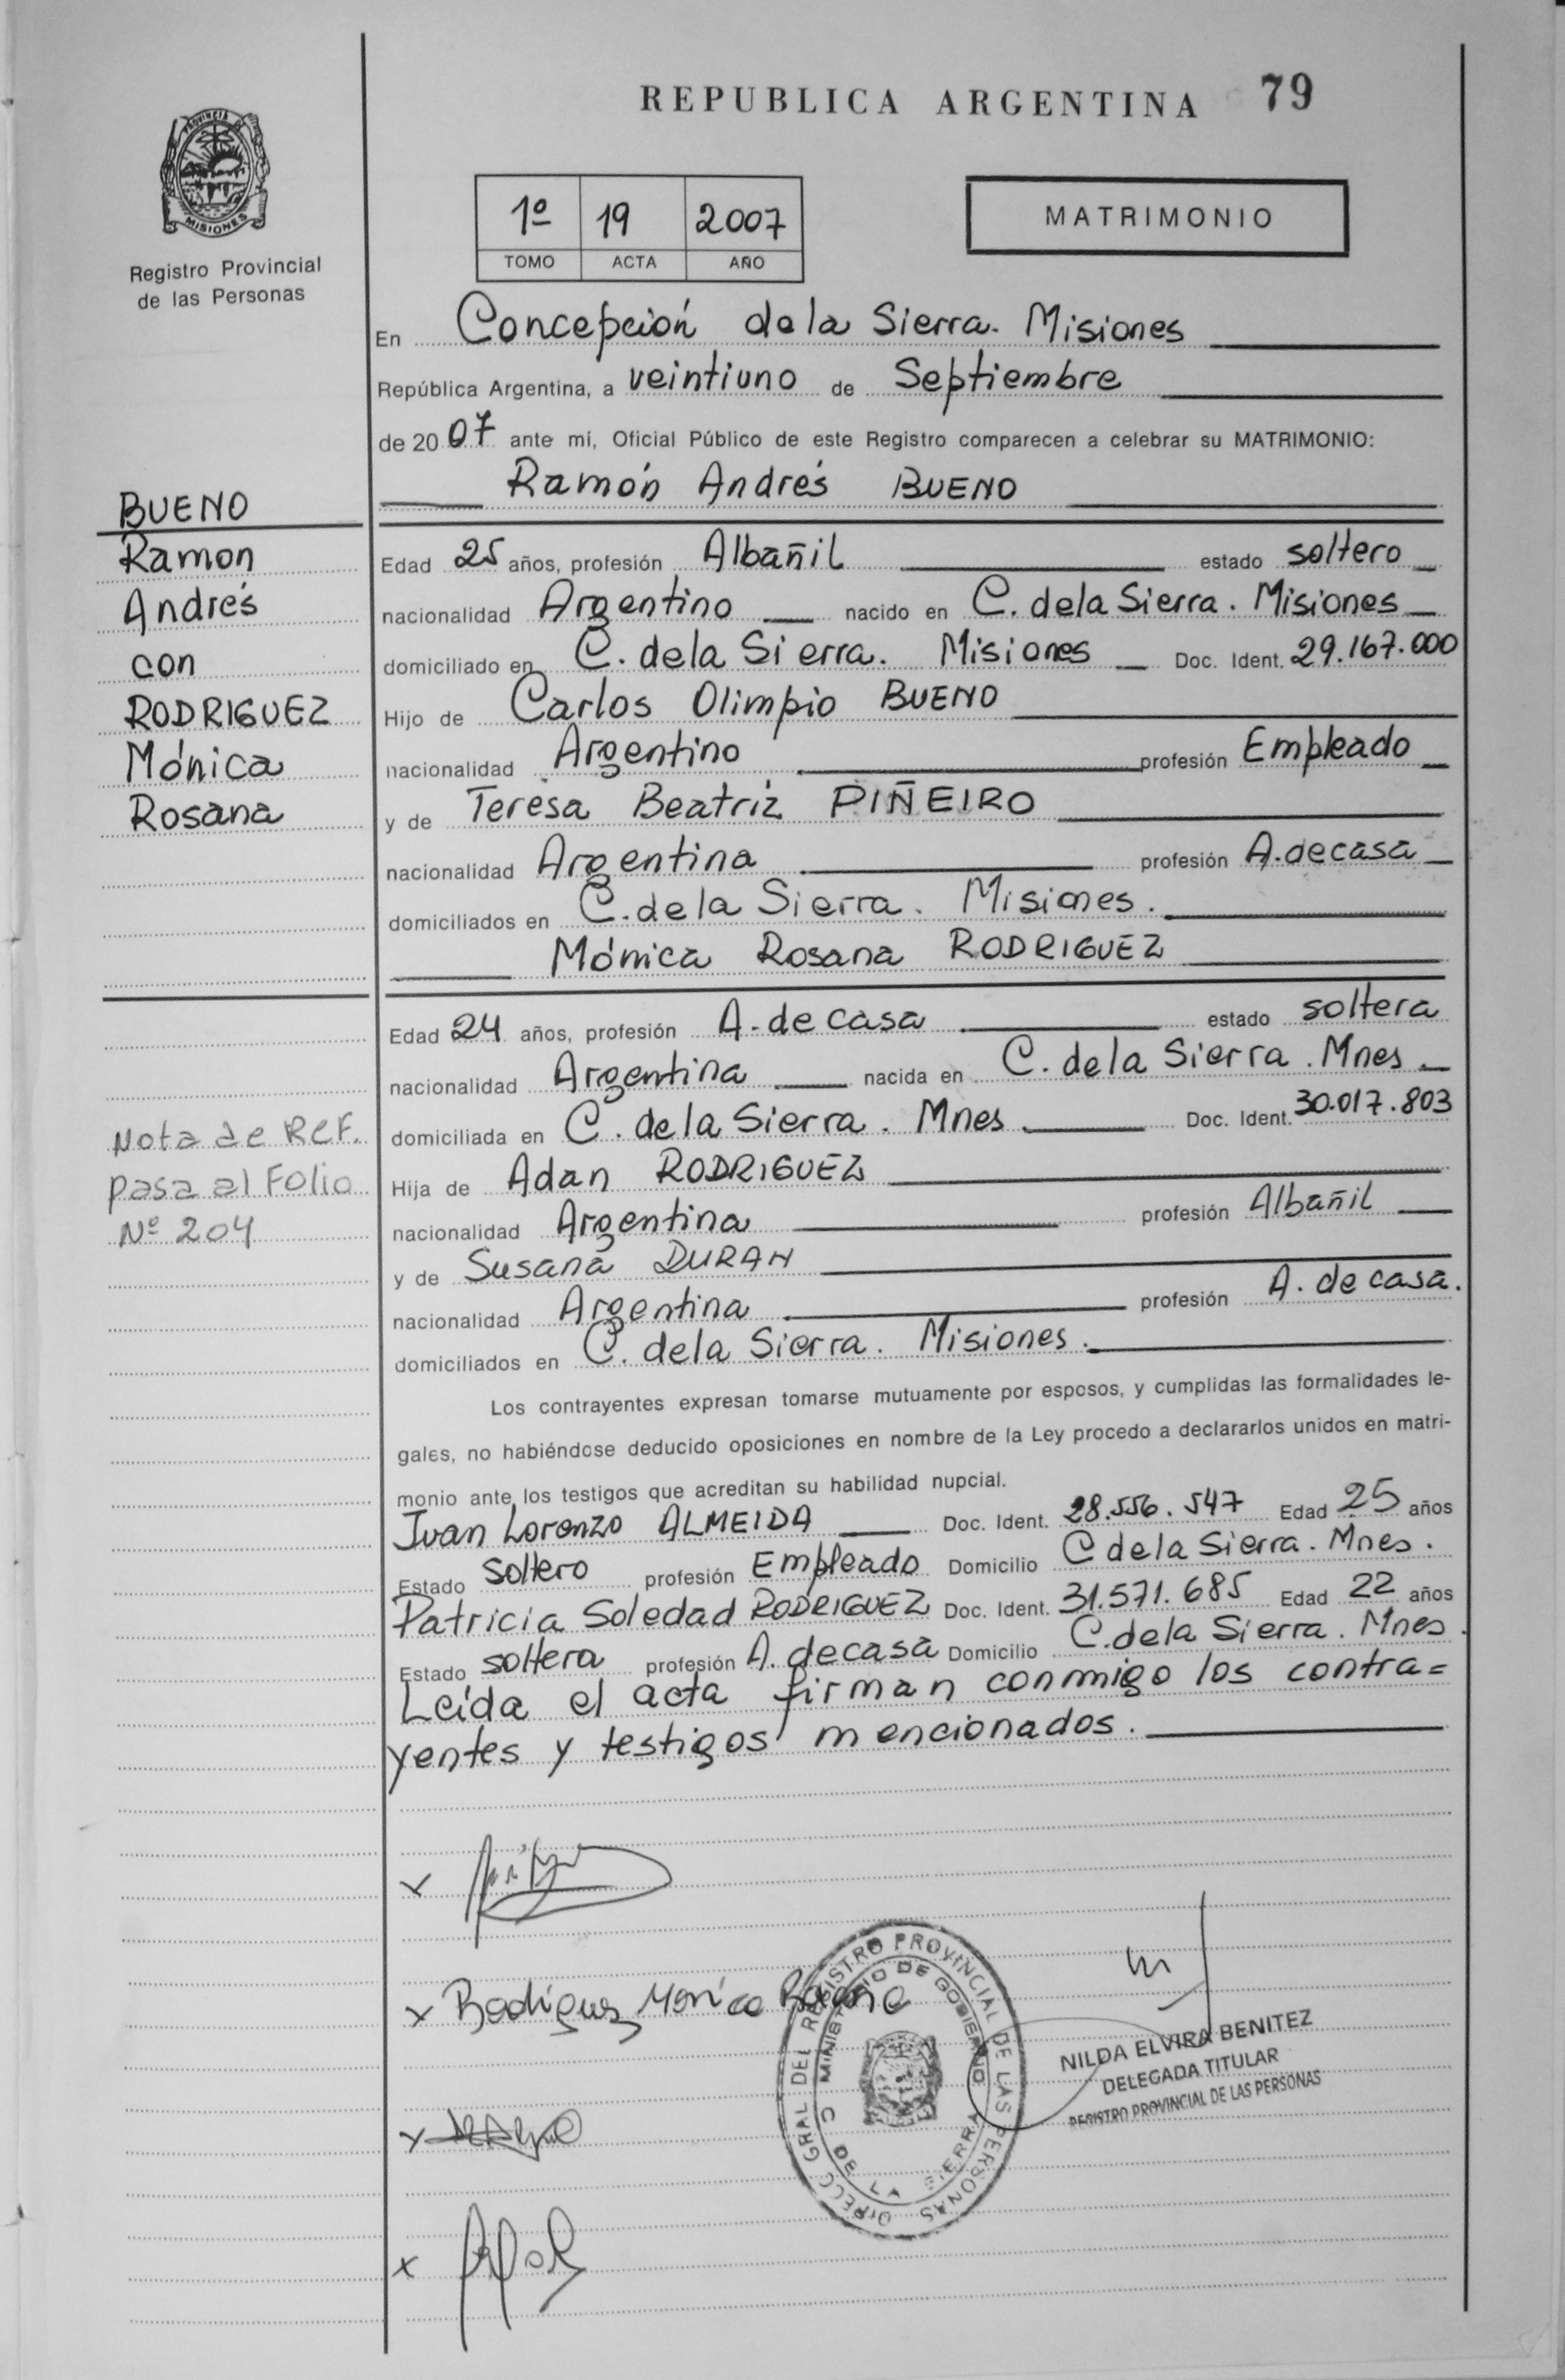 REPUBLICA ARGENTINA 79
PROVINCIA DE
MISIONES
Registro Provincial
de las Personas
1º 19 2007
TOMO ACTA AÑO
MATRIMONIO
En Concepción de la Sierra. Misiones
República Argentina, a veintiuno de Septiembre
de 2007 ante mí, Oficial Público de este Registro comparecen a celebrar su MATRIMONIO:
Ramón Andrés BUENO
BUENO
Ramon
Andrés
con
RODRIGUEZ
Mónica
Rosana
Edad 25 años, profesión Albañil estado soltero
nacionalidad Argentino nacido en C. de la Sierra. Misiones
domiciliado en C. de la Sierra. Misiones Doc. Ident. 29.167.000
Hijo de Carlos Olimpio BUENO
nacionalidad Argentino profesión Empleado
y de Teresa Beatriz PIÑEIRO
nacionalidad Argentina profesión A. de casa
domiciliados en C. de la Sierra. Misiones.
Mónica Rosana RODRIGUEZ
Edad 24 años, profesión A. de casa estado soltera
nacionalidad Argentina nacida en C. de la Sierra. Mnes
domiciliada en C. de la Sierra. Mnes. Doc. Ident. 30.017.803
Hija de Adan RODRIGUEZ
nacionalidad Argentina profesión Albañil
y de Susana DURAN
nacionalidad Argentina profesión A. de casa.
domiciliados en C. de la Sierra. Misiones.
Nota de Ref.
pasa al Folio
Nº 204
Los contrayentes expresan tomarse mutuamente por esposos, y cumplidas las formalidades le-
gales, no habiéndose deducido oposiciones en nombre de la Ley procedo a declararlos unidos en matri-
monio ante los testigos que acreditan su habilidad nupcial.
Ivan Lorenzo ALMEIDA Doc. Ident. 28.556.547 Edad 25 años
Estado soltero profesión Empleado Domicilio C de la Sierra. Mnes.
Patricia Soledad RODRIGUEZ Doc. Ident. 31.571.685 Edad 22 años
Estado soltera profesión A. de casa Domicilio C. de la Sierra. Mnes.
Leída el acta firman conmigo los contra=
yentes y testigos mencionados.
x
x Rodriguez Monica Rosana
x
x
DIRECC GRAL DEL REGISTRO PROVINCIAL DE LAS PERSONAS
MINISTERIO DE GOBIERNO
C DE LA SIERRA
NILDA ELVIRA BENITEZ
DELEGADA TITULAR
REGISTRO PROVINCIAL DE LAS PERSONAS